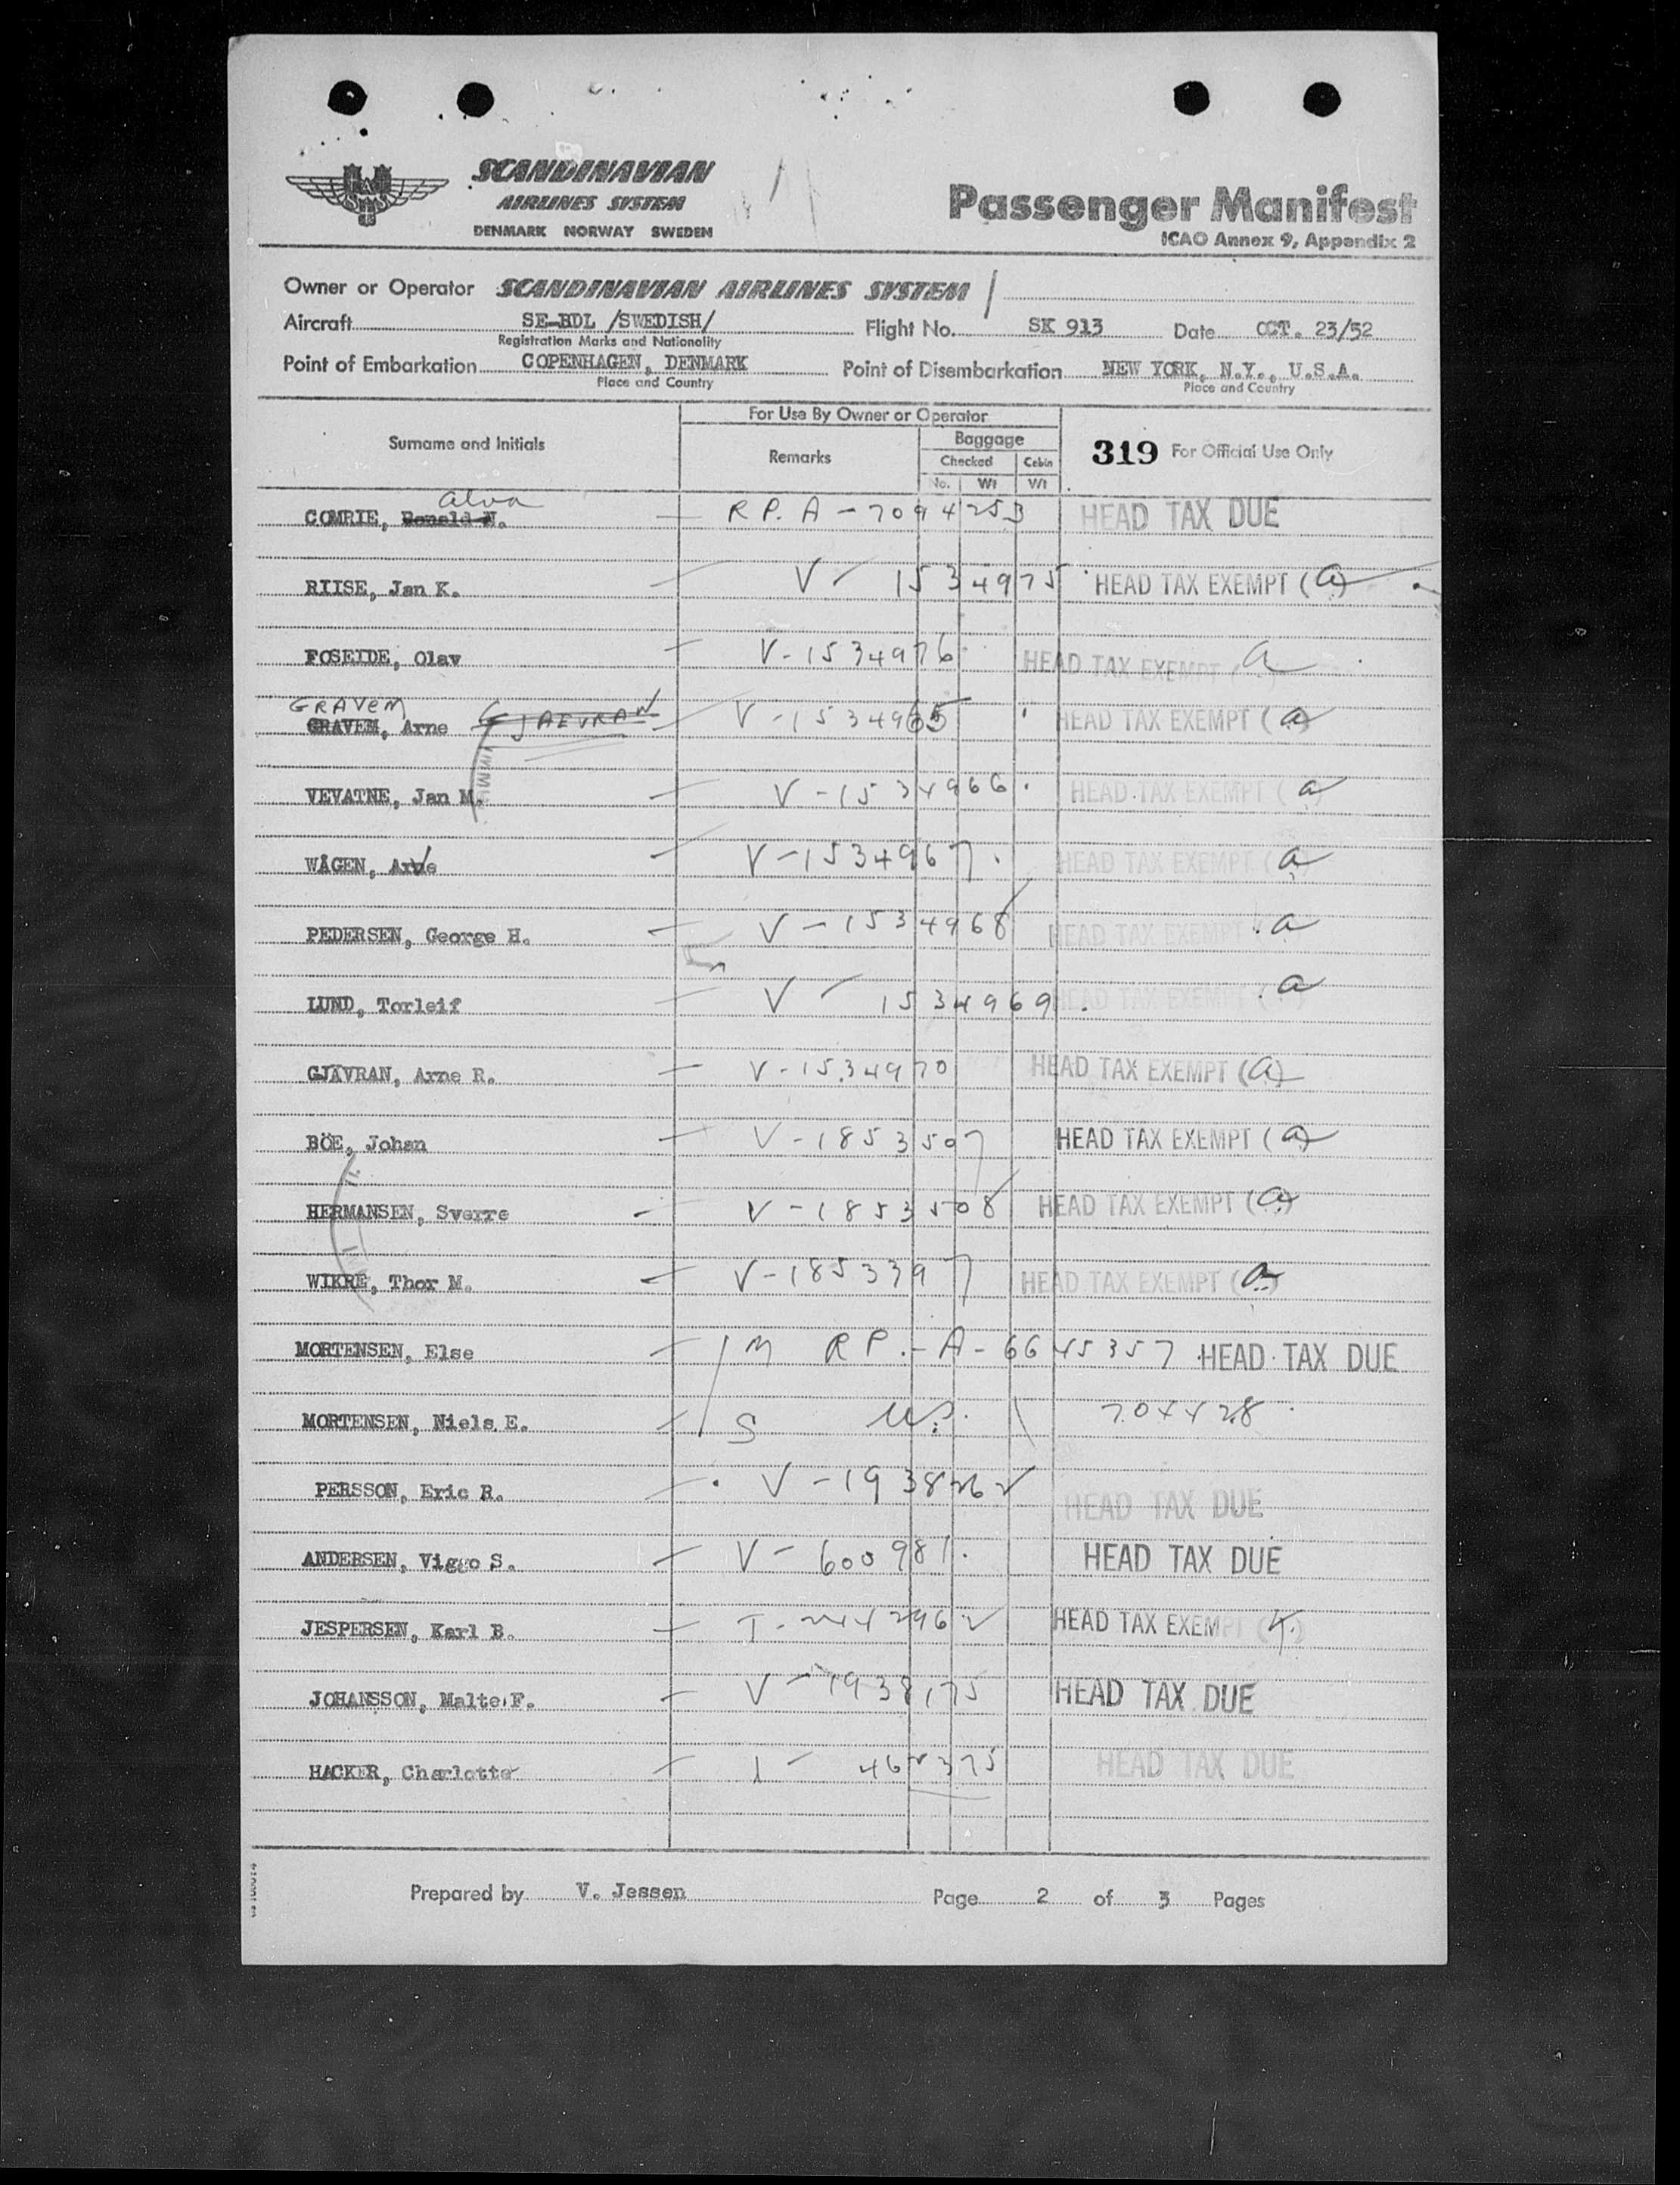 SCANDINAVIAN
AIRLINES SYSTEM
DENMARK NORWAY SWEDEN
Passenger Manifest
ICAO Annex 9, Appendix 2
Owner or Operator SCANDINAVIAN AIRLINES SYSTEM
Aircraft SE-BDL /SWEDISH/ Flight No. SK 913 Date OCT. 23/52
Registration Marks and Nationality
Point of Embarkation COPENHAGEN, DENMARK Point of Disembarkation NEW YORK, N.Y., U.S.A.
Place and Country Place and Country
For Use By Owner or Operator
Surname and Initials Remarks Baggage 319 For Official Use Only
Checked Cabin
No. Wt Wt
alva
COMRIE, Ronald N. — R P. A - 7094253 HEAD TAX DUE
RIISE, Jan K. — V - 1534975 HEAD TAX EXEMPT (a)
FOSEIDE, Olav — V-1534976 HEAD TAX EXEMPT a
GRAVEM
GRAVEM, Arne GJAEVRAN — V-1534965 HEAD TAX EXEMPT (a)
VEVATNE, Jan M. — V-1534966 HEAD TAX EXEMPT (a)
WÅGEN, Arve — V-1534967 HEAD TAX EXEMPT (a)
PEDERSEN, George H. — V-1534968 HEAD TAX EXEMPT a
LUND, Torleif — V - 1534969 HEAD TAX EXEMPT (a
GJÄVRAN, Arne R. — V-1534970 HEAD TAX EXEMPT (a)
BÖE, Johan — V-1853507 HEAD TAX EXEMPT (a)
HERMANSEN, Sverre — V-1853508 HEAD TAX EXEMPT (a)
WIKRE, Thor M. — V-1853397 HEAD TAX EXEMPT (a)
MORTENSEN, Else — M R P.-A-6645357 HEAD TAX DUE
MORTENSEN, Niels E. — S U.S. 704428
PERSSON, Eric R. — V-1938262 HEAD TAX DUE
ANDERSEN, Viggo S. — V-600981 HEAD TAX DUE
JESPERSEN, Karl B. — HEAD TAX EXEMPT
JOHANSSON, Malte F. — V-1938175 HEAD TAX DUE
HACKER, Charlotte — I - 462375 HEAD TAX DUE
Prepared by V. Jessen Page 2 of 3 Pages